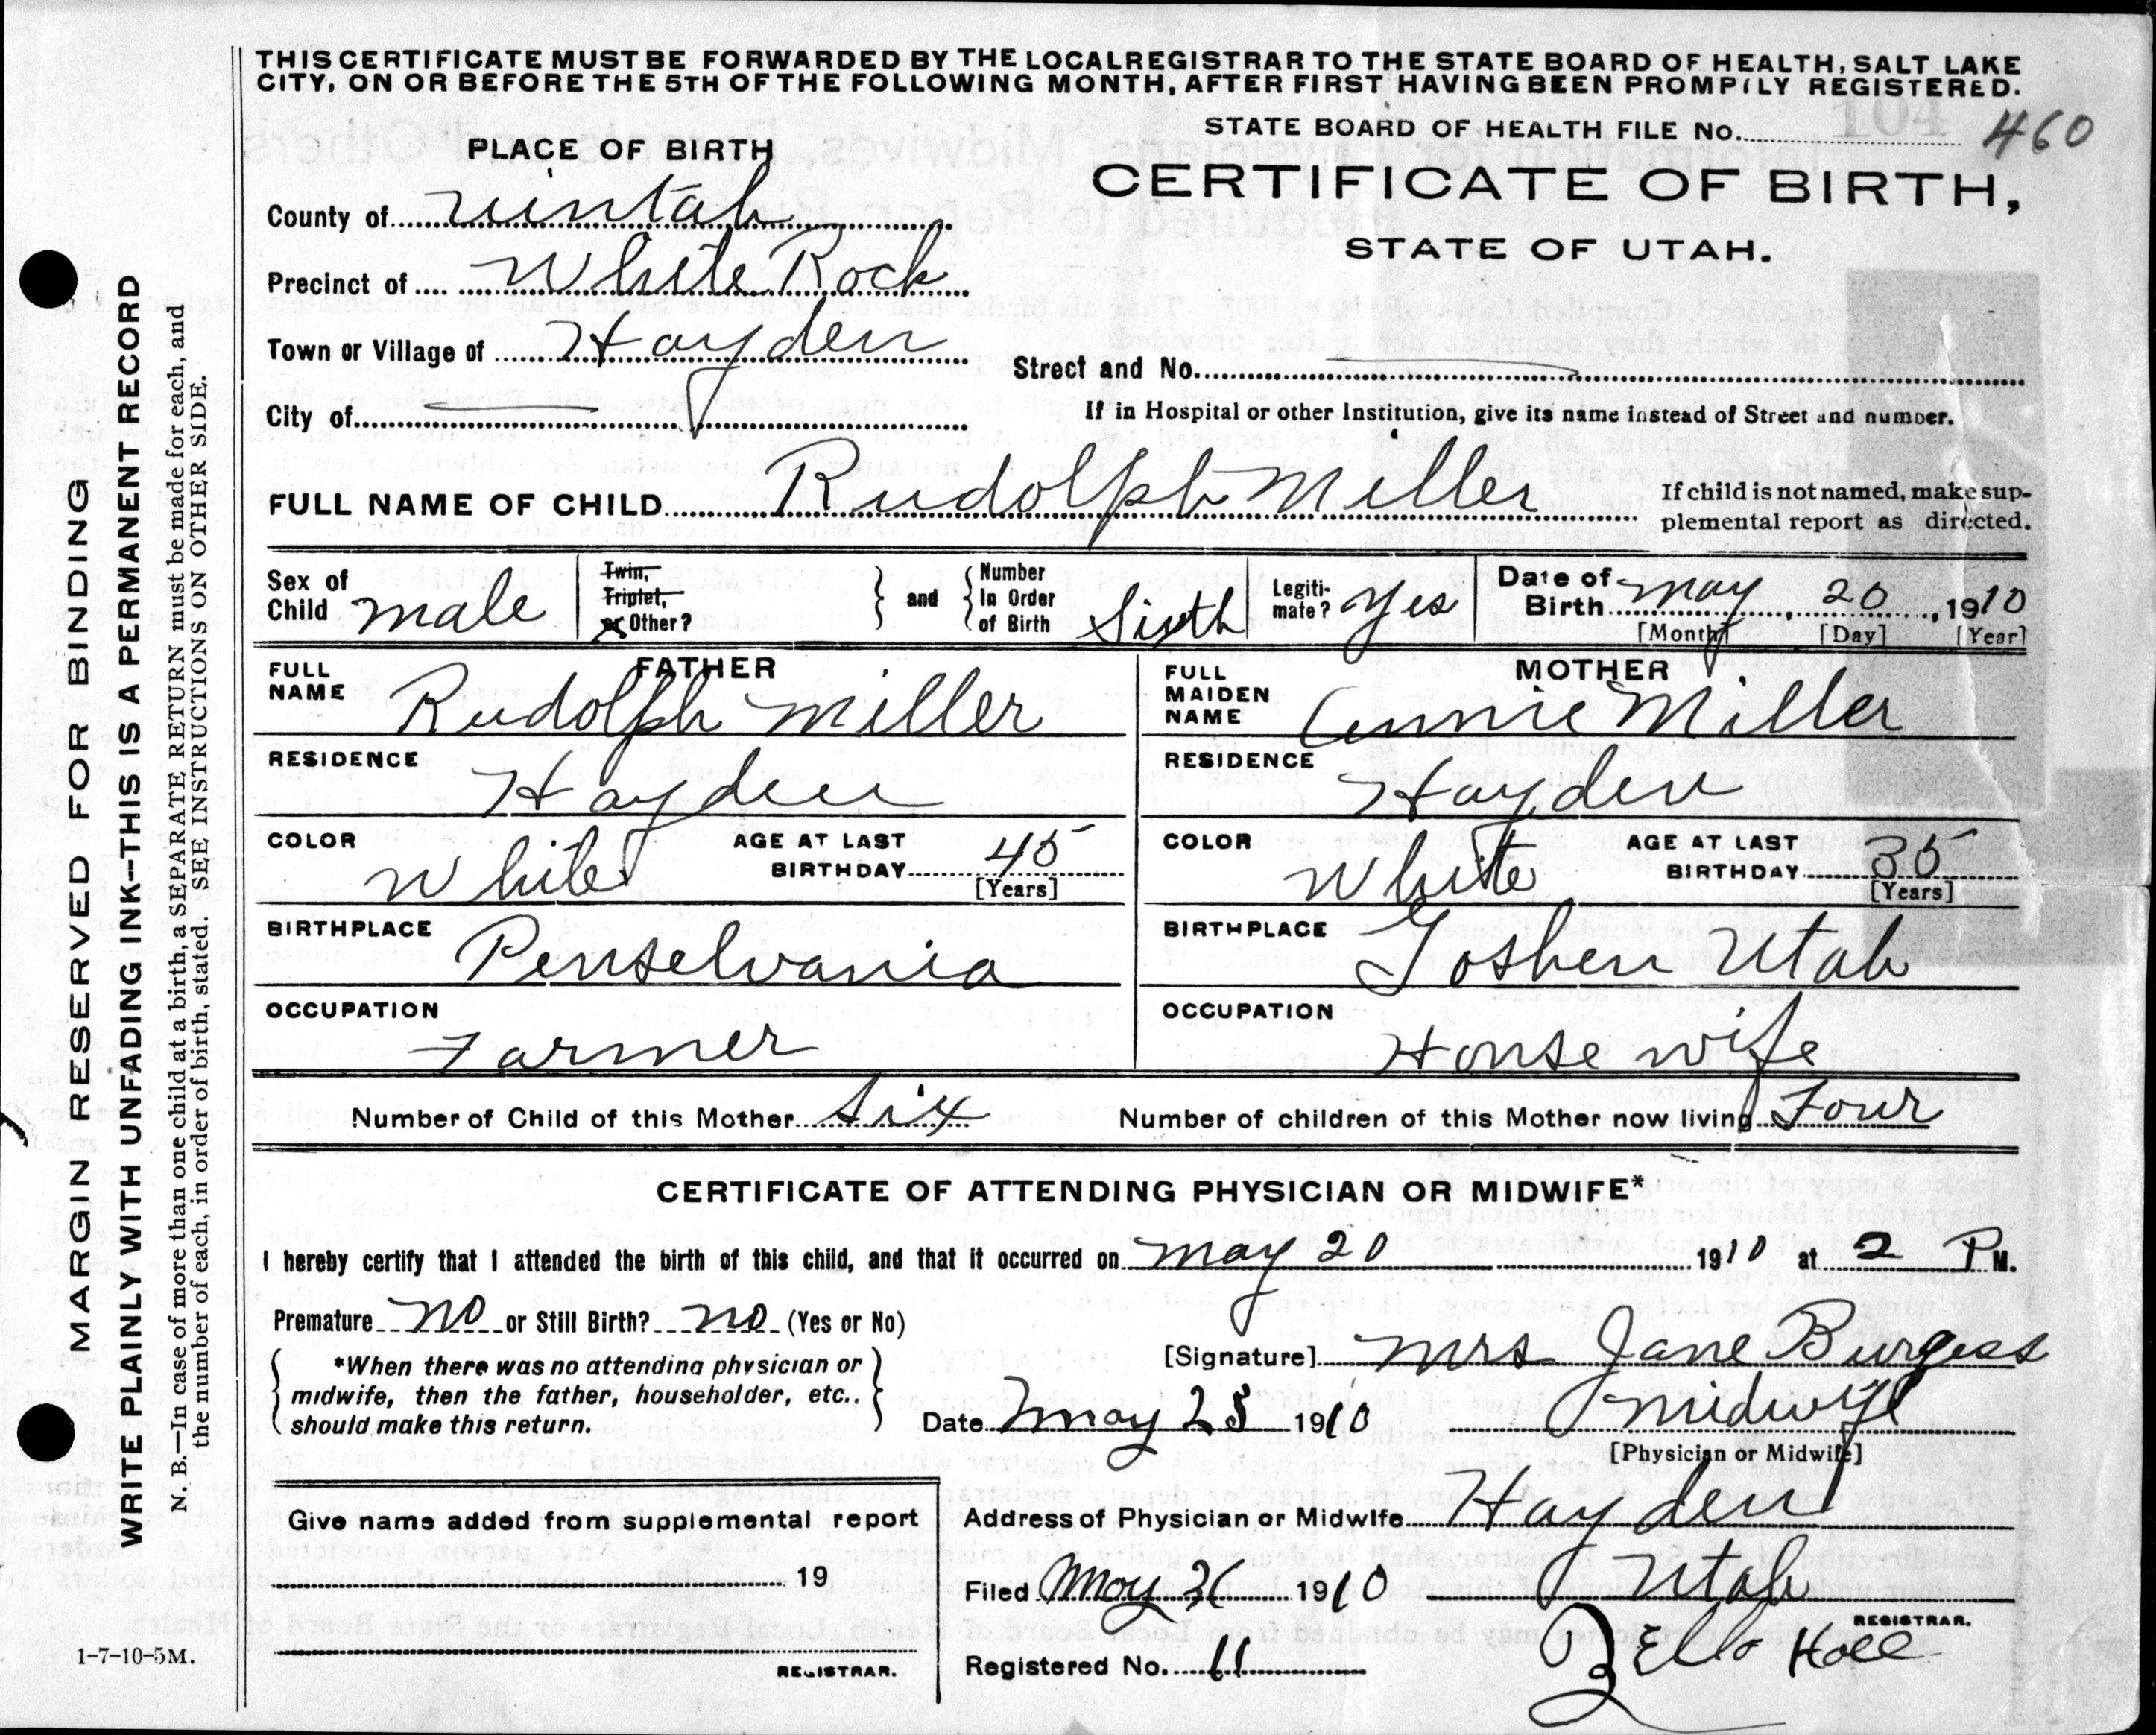 THIS CERTIFICATE MUST BE FORWARDED BY THE LOCAL REGISTRAR TO THE STATE BOARD OF HEALTH, SALT LAKE
CITY, ON OR BEFORE THE 5TH OF THE FOLLOWING MONTH, AFTER FIRST HAVING BEEN PROMPTLY REGISTERED.
STATE BOARD OF HEALTH FILE No. 104 460
PLACE OF BIRTH
CERTIFICATE OF BIRTH,
STATE OF UTAH.
County of Uintah
Precinct of White Rock
Town or Village of Hayden
Street and No.
City of
If in Hospital or other Institution, give its name instead of Street and number.
FULL NAME OF CHILD Rudolph Miller
If child is not named, make sup-
plemental report as directed.
Sex of Child male
Twin, Triplet, or Other?
and
Number In Order of Birth Sixth
Legiti-mate? Yes
Date of Birth May, 20, 1910
[Month] [Day] [Year]
FATHER
FULL NAME Rudolph Miller
RESIDENCE Hayden
COLOR White
AGE AT LAST BIRTHDAY 45 [Years]
BIRTHPLACE Penselvania
OCCUPATION Farmer
MOTHER
FULL MAIDEN NAME Annie Miller
RESIDENCE Hayden
COLOR White
AGE AT LAST BIRTHDAY 35 [Years]
BIRTHPLACE Goshen Utah
OCCUPATION House wife
Number of Child of this Mother Six
Number of children of this Mother now living Four
CERTIFICATE OF ATTENDING PHYSICIAN OR MIDWIFE*
I hereby certify that I attended the birth of this child, and that it occurred on May 20 1910 at 2 P M.
Premature no or Still Birth? no (Yes or No)
*When there was no attending physician or
midwife, then the father, householder, etc.,
should make this return.
[Signature] Mrs Jane Burgess
Date May 25 1910
midwife
[Physician or Midwife]
Give name added from supplemental report
19
REGISTRAR.
Address of Physician or Midwife Hayden
Utah
Filed May 1910
REGISTRAR.
Registered No. 11
Zella Hall
1-7-10-5M.
MARGIN RESERVED FOR BINDING
WRITE PLAINLY WITH UNFADING INK--THIS IS A PERMANENT RECORD
N. B.—In case of more than one child at a birth, a SEPARATE RETURN must be made for each, and
the number of each, in order of birth, stated. SEE INSTRUCTIONS ON OTHER SIDE.